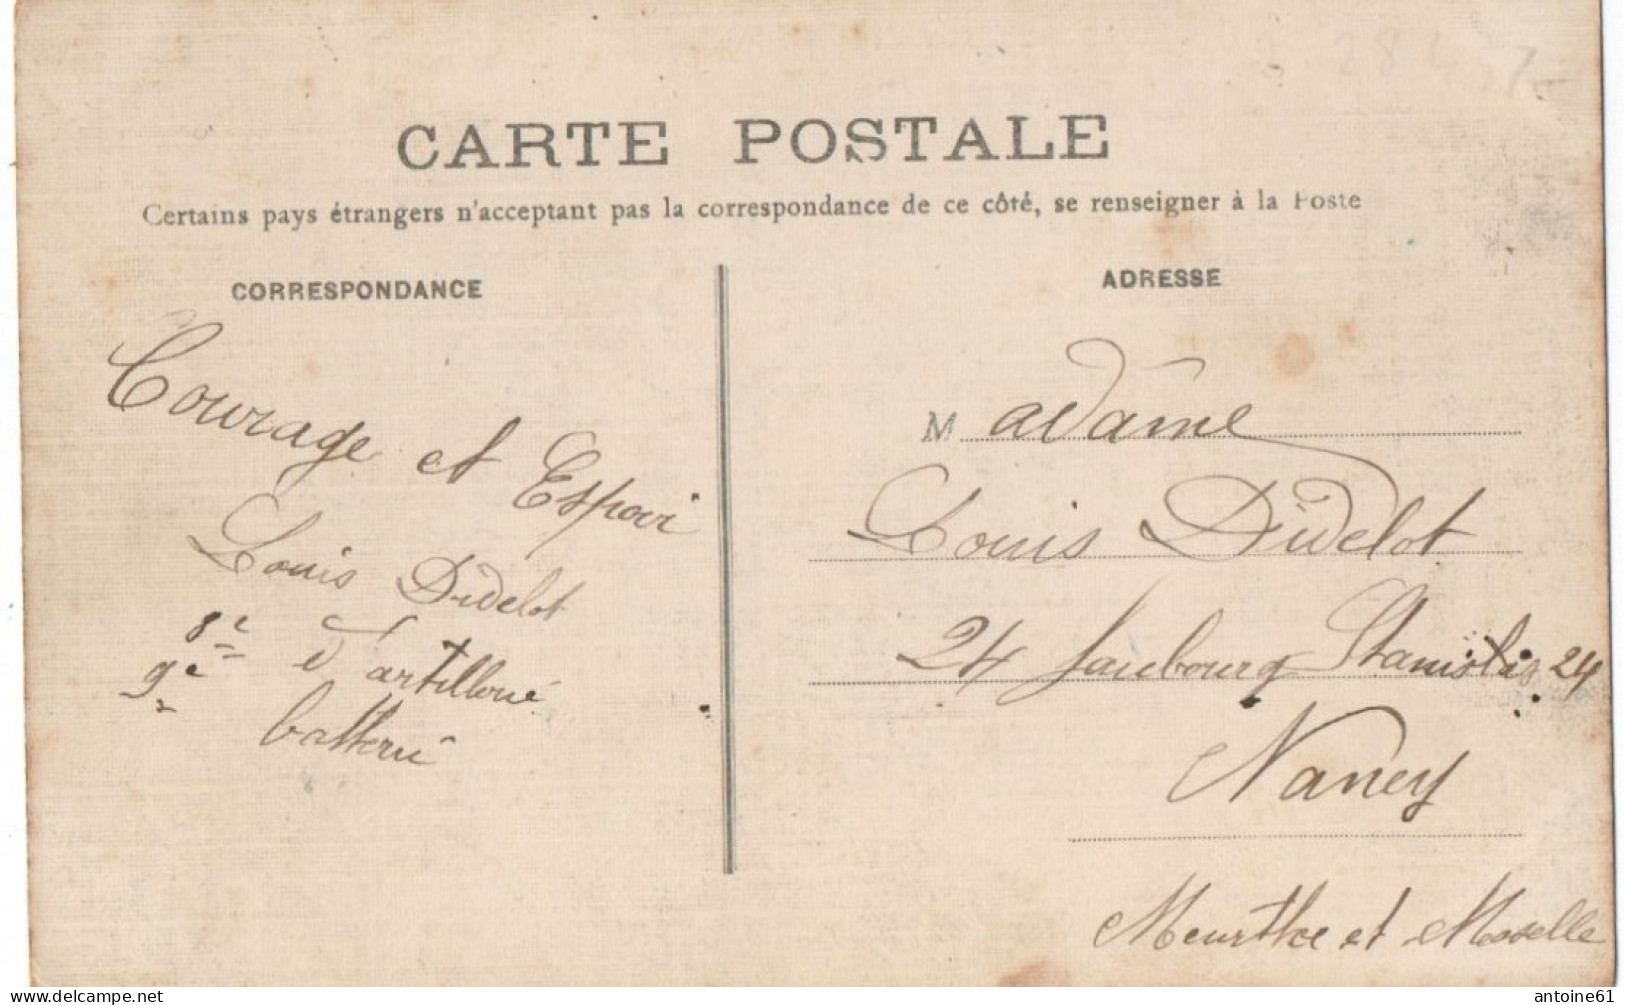 CARTE POSTALE
Certains pays étrangers n'acceptant pas la correspondance de ce côté, se renseigner à la Poste
CORRESPONDANCE
Courage et Espoir
Louis Didelot
8e d'artillerie
9e batterie
ADRESSE
Madame
Louis Didelot
24 faubourg Stanislas 24
Nancy
Meurthe et Moselle
antoine61